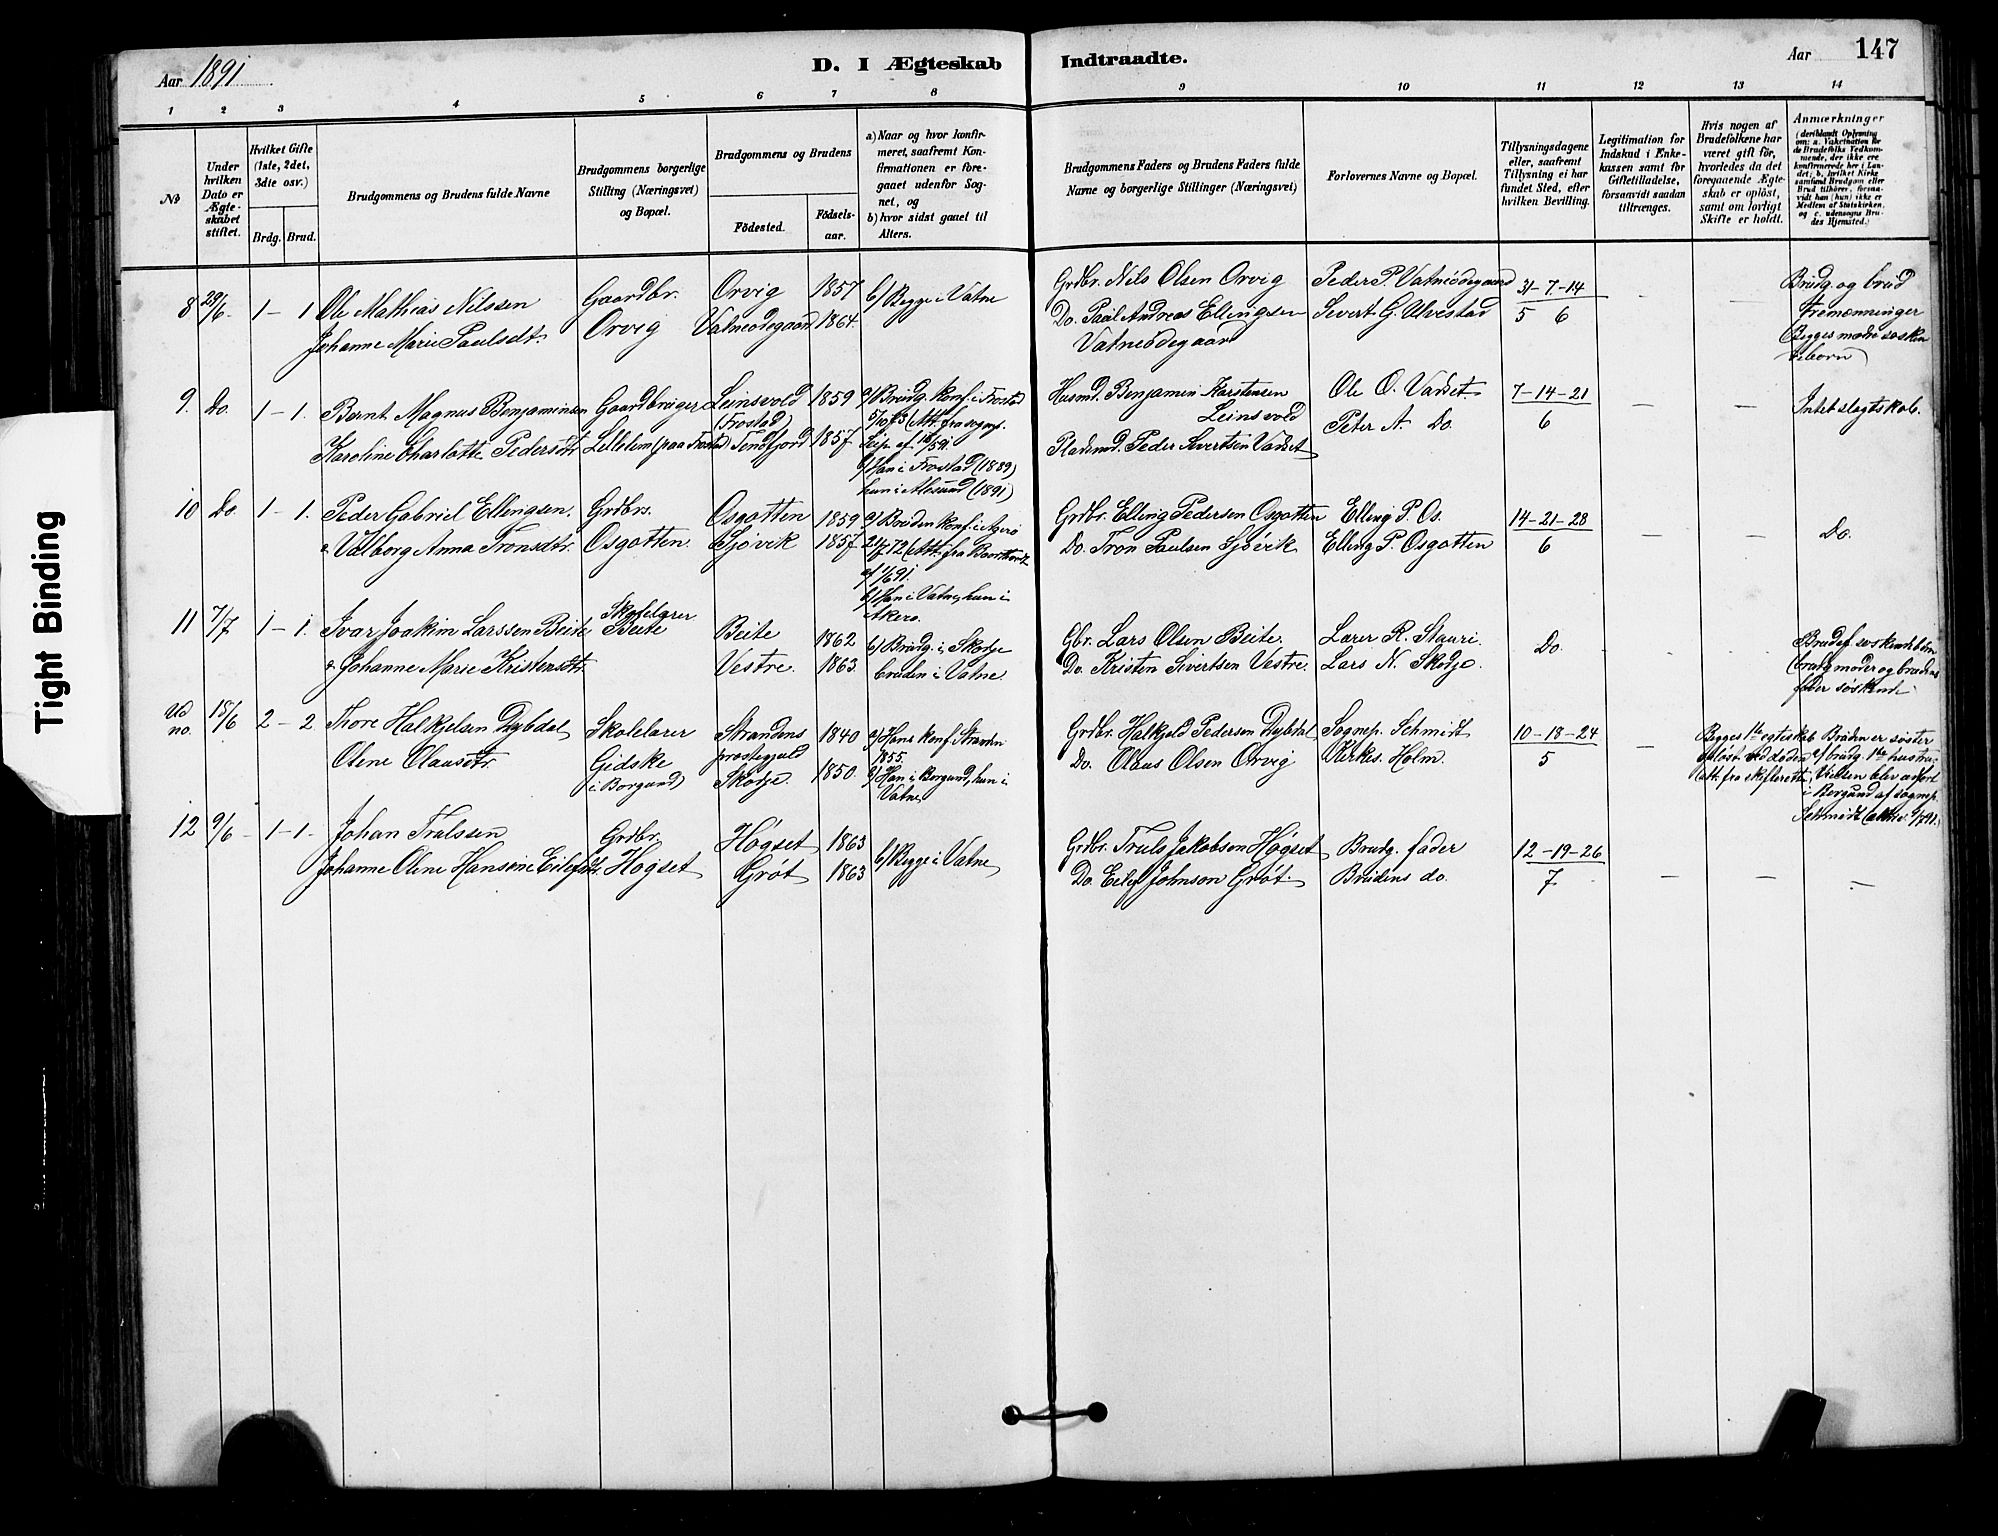 Aar 1891
D. I Ægteskab Indtraadte.
Aar 147
1 2 3 4 5 6 7 8 9 10 11 12 13 14
No
Under hvilken Dato er Ægteskabet stiftet.
Hvilket Gifte (1ste, 2det, 3die osv.)
Brdg. Brud.
Brudgommens og Brudens fulde Navne
Brudgommens borgerlige Stilling (Næringsvei) og Bopæl.
Brudgommens og Brudens
Födested.
Födselsaar.
a) Naar og hvor konfirmeret, saafremt Konfirmationen er foregaaet udenfor Sognet, og
b) hvor sidst gaaet til Alters.
Brudgommens Faders og Brudens Faders fulde Navne og borgerlige Stillinger (Næringsvei)
Forlovernes Navne og Bopæl.
Tillysningsdagene eller, saafremt Tillysning ei har fundet Sted, efter hvilken Bevilling.
Legitimation for Indskud i Enkekassen samt for Giftetilladelse, forsaavidt saadan tiltrænges.
Hvis nogen af Brudefolkene har været gift för, hvorledes da det foregaaende Ægteskab er oplöst, samt om lovligt Skifte er holdt.
Anmærkninger (deriblandt Oplysning om: a. Vakcination for de Brudefolks Vedkommende, der ikke ere konfirmerede her i Landet; b. hvilket Kirkesamfund Brudgom eller Brud tilhörer, forsaavidt han (hun) ikke er Medlem af Statskirken, og c. udensogns Brudes Hjemsted.)
8 29/6 1 - 1 Ole Mathias Nilssen Gaardbr. Orvig 1857 b) Begge i Vatne Grdbr. Nils Olsen Orvig Peder P. Vatneødegaard 31-7-14 — — Brudg. og brud
Johanne Marie Paulsdt. Orvig Vatneødegaard 1864. Do. Paul Andreas Ellingsen Sivert G. Ulvestad 5 6 tremænninger
Vatneødegaard (Begges mødre søsken
deborn)
9. Do. 1 - 1. Bernt Magnus Benjaminsen Gaardbruger Leinsvold 1859 a) Brudg. konf. i Frostad Husmd. Benjamin Karstensen Ole O. Vadset 7-14-21 — — Intet slegtskab.
Karoline Charlotte Pedersdt. Lillelien (paa Frostad) (Frostad) Søndfjord 1857. 5/10 73 (Att. fra sognep. Leinsvold Peter A. Do. 6
Pladsmd. Peder Sivertsen Vadset
b) Han i Frostad (1889)
hun i Alesund (1891)
10 Do. 1 - 1. Peder Gabriel Ellingsen. Grdbrs. Osgotten 1859 a) Bruden konf. i Agerø Grdbr. Elling Pedersen Osgotten Elling P. Os. 14-21-28 — — Do.
& Valborg Anna Tronsdtr. Osgotten. Sjøvik 1857. Do. Tron Paulsen Sjøvik Elling P. Osgotten 6
b) Han i Vatne, hun i
Akerø.
11 7/7 1 - 1. Ivar Joakim Larssen Beite Skolelærer Beite Beite 1862 b) Brudg. i Skodje Gbr. Lars Olsen Beite. Lærer R. Stauri. Do. - - Brudef. søskendebørn
& Johanne Marie Kristensdt. Vestre. 1863. bruden i Vatne. Do. Kristen Sivertsen Vestre. Lars N. Skodje. (brudg. moder og brudens
fader søskende.
Ud no. 18/6 2 - 2 Thore Halkjelsen Dybdal Skolelærer Strandens 1840 a) Hans konf. Stranden Grdbr. Halkjeld Pedersen Dybdal Sognep. Schmidt 10-18-24 — Begges 1ste egteskab Bruden er søster
Olene Olausdtr. Gidske præstegjeld 1855. Do. Olaus Olsen Orvig Kirkes. Holm. 5 opløst ved døden af brudg. 1ste hustru.
i Borgund) Skodje. 1850. b) Han i Borgund, hun i (att. fra skifteretten) Vielsen blev udført
Vatne i Borgund af sognep.
Schmidt
12 9/6 1 - 1. Johan Trulssen Grdbr. Høgset 1863 b) Begge i Vatne Grdbr. Truls Jakobsen Høgset Brudg. fader 12-19-26 — — —
Johanne Olene Hansine Eilefsdt. Høgset Grøt 1863 Do. Eilef Johnson Grøt. Brudens do. 7
Tight Binding